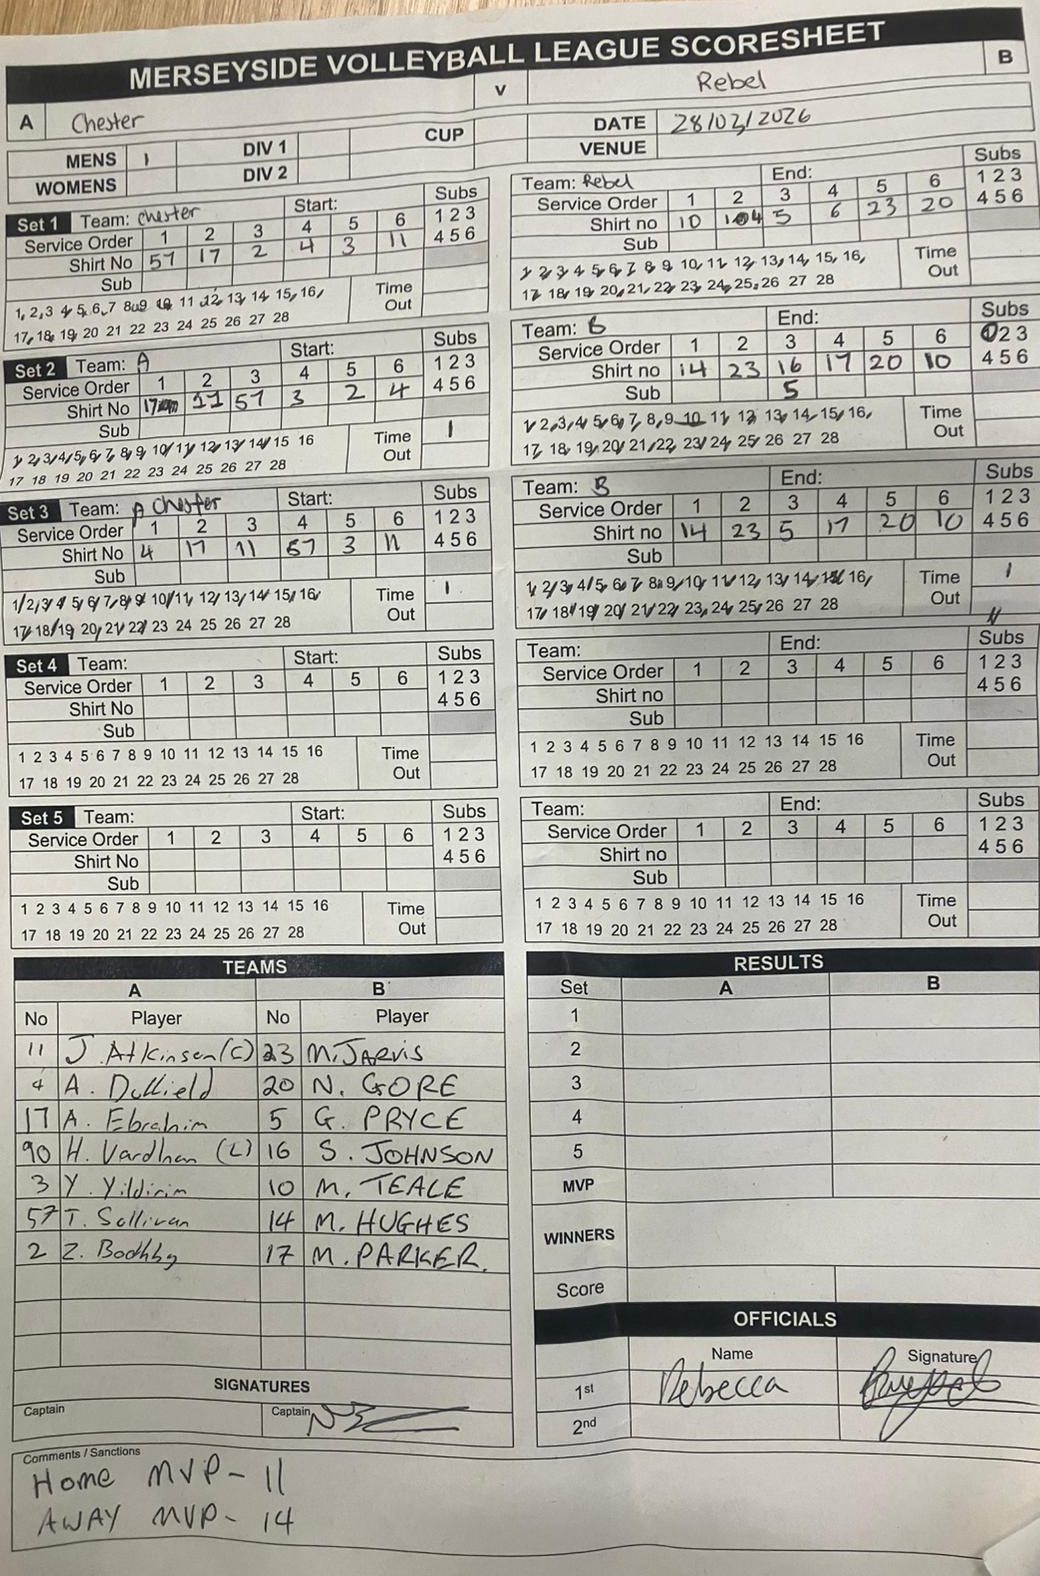 MERSEYSIDE VOLLEYBALL LEAGUE SCORESHEET
A Chester v Rebel B
MENS 1 DIV 1 CUP DATE 28/03/2026
WOMENS DIV 2 VENUE
Set 1 Team: Chester Start: Subs
Service Order 1 2 3 4 5 6 1 2 3
Shirt No 57 17 2 4 3 11 4 5 6
Sub
1, 2, 3 4 5 6 7 8 9 10 11 12 13 14 15 16 Time
17 18 19 20 21 22 23 24 25 26 27 28 Out
Team: Rebel End: Subs
Service Order 1 2 3 4 5 6 1 2 3
Shirt no 10 14 5 6 23 20 4 5 6
Sub
1 2 3 4 5 6 7 8 9 10 11 12 13 14 15 16 Time
17 18 19 20 21 22 23 24 25 26 27 28 Out
Set 2 Team: A Start: Subs
Service Order 1 2 3 4 5 6 1 2 3
Shirt No 17 11 57 3 2 4 4 5 6
Sub
1 2 3 4 5 6 7 8 9 10 11 12 13 14 15 16 Time 1
17 18 19 20 21 22 23 24 25 26 27 28 Out
Team: B End: Subs
Service Order 1 2 3 4 5 6 1 2 3
Shirt no 14 23 16 17 20 10 4 5 6
Sub 5
1 2 3 4 5 6 7 8 9 10 11 12 13 14 15 16 Time
17 18 19 20 21 22 23 24 25 26 27 28 Out
Set 3 Team: A Chester Start: Subs
Service Order 1 2 3 4 5 6 1 2 3
Shirt No 4 17 11 57 3 4 5 6
Sub
1 2 3 4 5 6 7 8 9 10 11 12 13 14 15 16 Time 1
17 18 19 20 21 22 23 24 25 26 27 28 Out
Team: B End: Subs
Service Order 1 2 3 4 5 6 1 2 3
Shirt no 14 23 5 17 20 10 4 5 6
Sub
1 2 3 4 5 6 7 8 9 10 11 12 13 14 15 16 Time 1
17 18 19 20 21 22 23 24 25 26 27 28 Out
Set 4 Team: Start: Subs
Service Order 1 2 3 4 5 6 1 2 3
Shirt No 4 5 6
Sub
1 2 3 4 5 6 7 8 9 10 11 12 13 14 15 16 Time
17 18 19 20 21 22 23 24 25 26 27 28 Out
Team: End: Subs
Service Order 1 2 3 4 5 6 1 2 3
Shirt no 4 5 6
Sub
1 2 3 4 5 6 7 8 9 10 11 12 13 14 15 16 Time
17 18 19 20 21 22 23 24 25 26 27 28 Out
Set 5 Team: Start: Subs
Service Order 1 2 3 4 5 6 1 2 3
Shirt No 4 5 6
Sub
1 2 3 4 5 6 7 8 9 10 11 12 13 14 15 16 Time
17 18 19 20 21 22 23 24 25 26 27 28 Out
Team: End: Subs
Service Order 1 2 3 4 5 6 1 2 3
Shirt no 4 5 6
Sub
1 2 3 4 5 6 7 8 9 10 11 12 13 14 15 16 Time
17 18 19 20 21 22 23 24 25 26 27 28 Out
TEAMS
A B
No Player No Player
11 J. Atkinson (C) 23 M. JARVIS
4 A. Duffield 20 N. GORE
17 A. Ebrahim 5 G. PRYCE
90 H. Vardhan (L) 16 S. JOHNSON
3 Y. Yildirim 10 M. TEALE
57 T. Sullivan 14 M. HUGHES
2 Z. 17 M. PARKER.
SIGNATURES
Captain Captain
RESULTS
Set A B
1
2
3
4
5
MVP
WINNERS
Score
OFFICIALS
Name Signature
1st Rebecca
2nd
Comments / Sanctions
HOME MVP - 11
AWAY MVP - 14